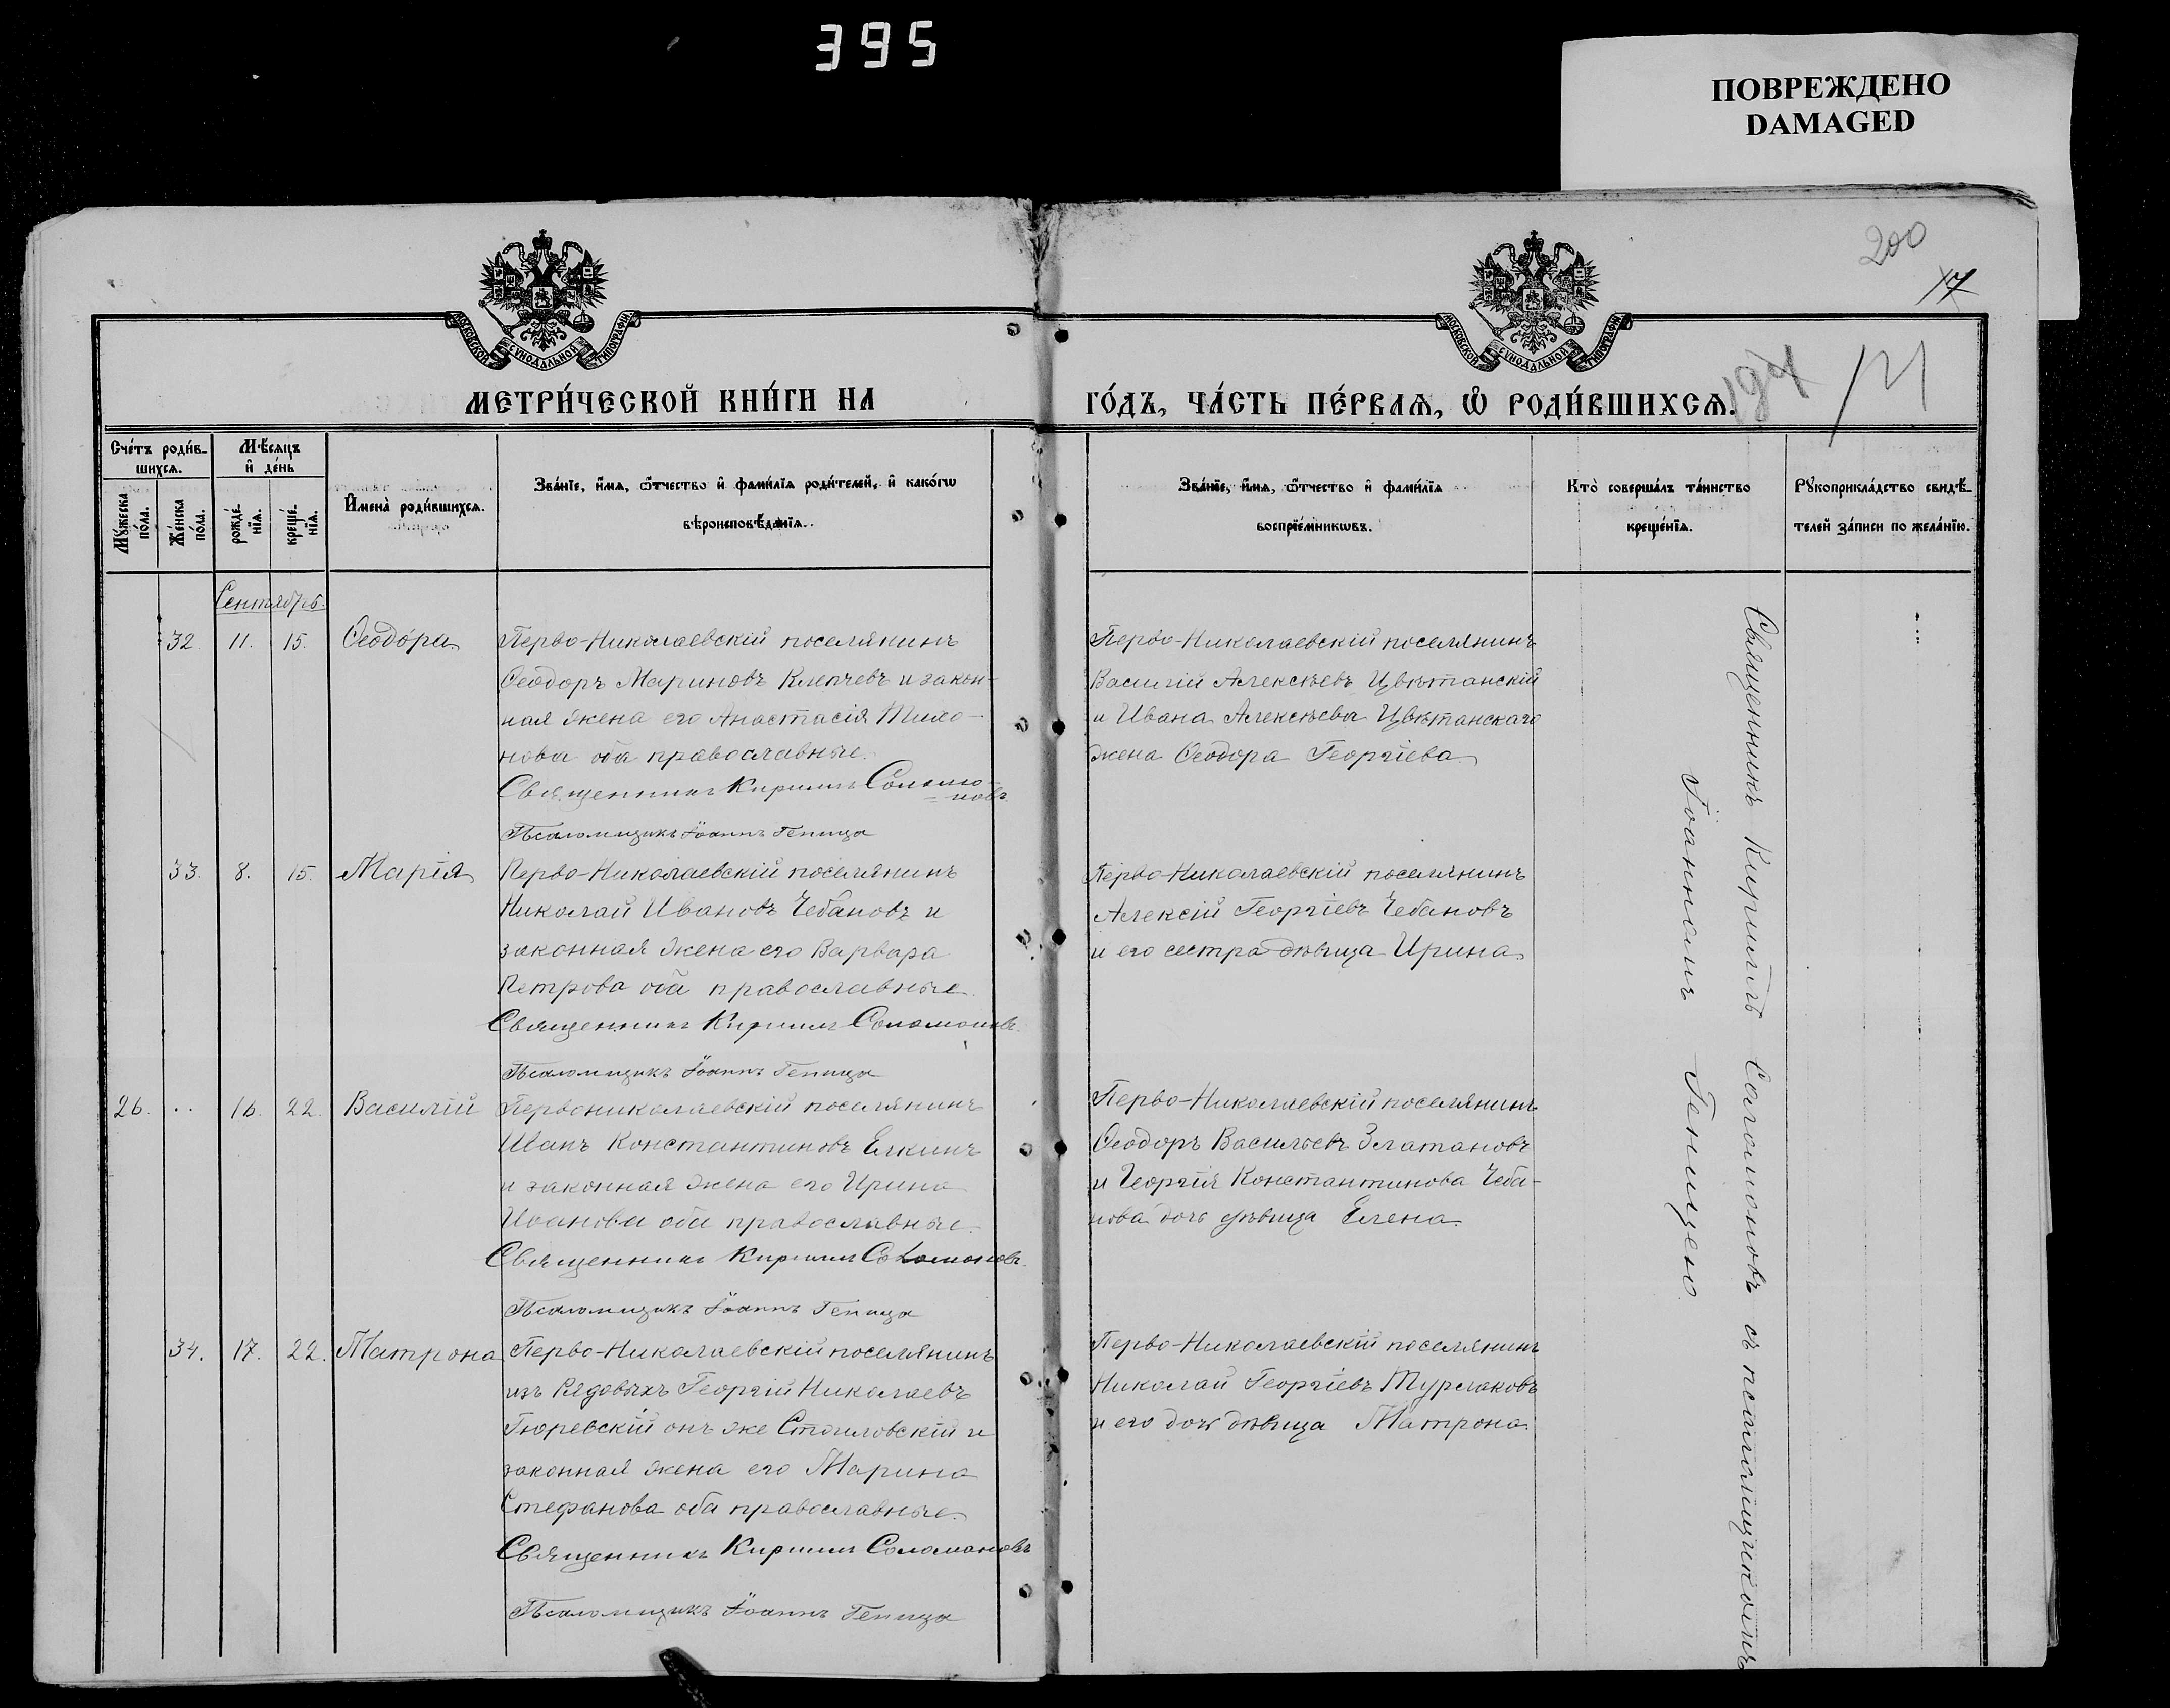 395
ПОВРЕЖДЕНО
DAMAGED
200
17
194
171
МОСКОВСКОЙ СѴНОДАЛЬНОЙ ТИПОГРАФІИ
МОСКОВСКОЙ СѴНОДАЛЬНОЙ ТИПОГРАФІИ
МЕТРИ́ЧЕСКОЙ КНИ́ГИ НА ГО́ДЪ, ЧА́СТЬ ПЕ́РВАѦ, Ѡ҆ РОДИ́ВШИХСѦ.
Сче́тъ роди́в-
шихсѧ.
Мꙋжеска по́ла.
Же́нска по́ла.
Мѣ́сѧцъ
и҆ де́нь
рожде́-
нїѧ.
креще́-
нїѧ.
И҆мена̀ роди́вшихсѧ.
Зва́нїе, и҆́мѧ, ѻ҆́тчество и҆ фами́лїѧ роди́телей, и҆ како́гѡ
вѣроисповѣ́данїѧ.
Зва́нїе, и҆́мѧ, ѻ҆́тчество и҆ фами́лїѧ
воспрїе́мникѡвъ.
Кто̀ соверша́лъ та́инство
креще́нїѧ.
Рꙋкоприкла́дство свидѣ́-
телей за́писи по жела́нїю.
Сентябрь.
32. 11. 15. Ѳеодо́ра
Перво-Николаевскій поселянинъ
Ѳеодоръ Мариновъ Клепчевъ и закон-
ная жена его Анастасія Михо-
нова оба православные.
Священникъ Кириллъ Соломо-
новъ
Псаломщикъ Іоаннъ Геница
Перво-Николаевскій поселянинъ
Василій Алексѣевъ Цвѣтанскій
и Ивана Алексѣева Цвѣтанскаго
жена Ѳеодора Георгіева
33. 8. 15. Марія
Перво-Николаевскій поселянинъ
Николай Ивановъ Чебановъ и
законная жена его Варвара
Петрова оба православные.
Священникъ Кириллъ Соломоновъ.
Псаломщикъ Іоаннъ Геница
Перво-Николаевскій поселянинъ
Алексій Георгіевъ Чебановъ
и его сестра дѣвица Ирина
26. .. 16. 22. Василій
Первониколаевскій поселянинъ
Иванъ Константиновъ Елкинъ
и законная жена его Ирина
Иванова оба православные.
Священникъ Кириллъ Соломоновъ.
Псаломщикъ Іоаннъ Геница
Перво-Николаевскій поселянинъ
Ѳеодоръ Васильевъ Златановъ
и Георгія Константинова Чеба-
нова дочь дѣвица Елена
34. 17. 22. Матрона
Перво-Николаевскій поселянинъ
изъ Рядовыхъ Георгій Николаевъ
Гюревскій онъ же Стоиловскій и
законная жена его Марина
Стефанова оба православные.
Священникъ Кириллъ Соломоновъ
Псаломщикъ Іоаннъ Геница
Перво-Николаевскій поселянинъ
Николай Георгіевъ Турлаковъ
и его дочь дѣвица Матрона.
Священникъ Кириллъ Соломоновъ съ псаломщикомъ
Іоанномъ Геницею.